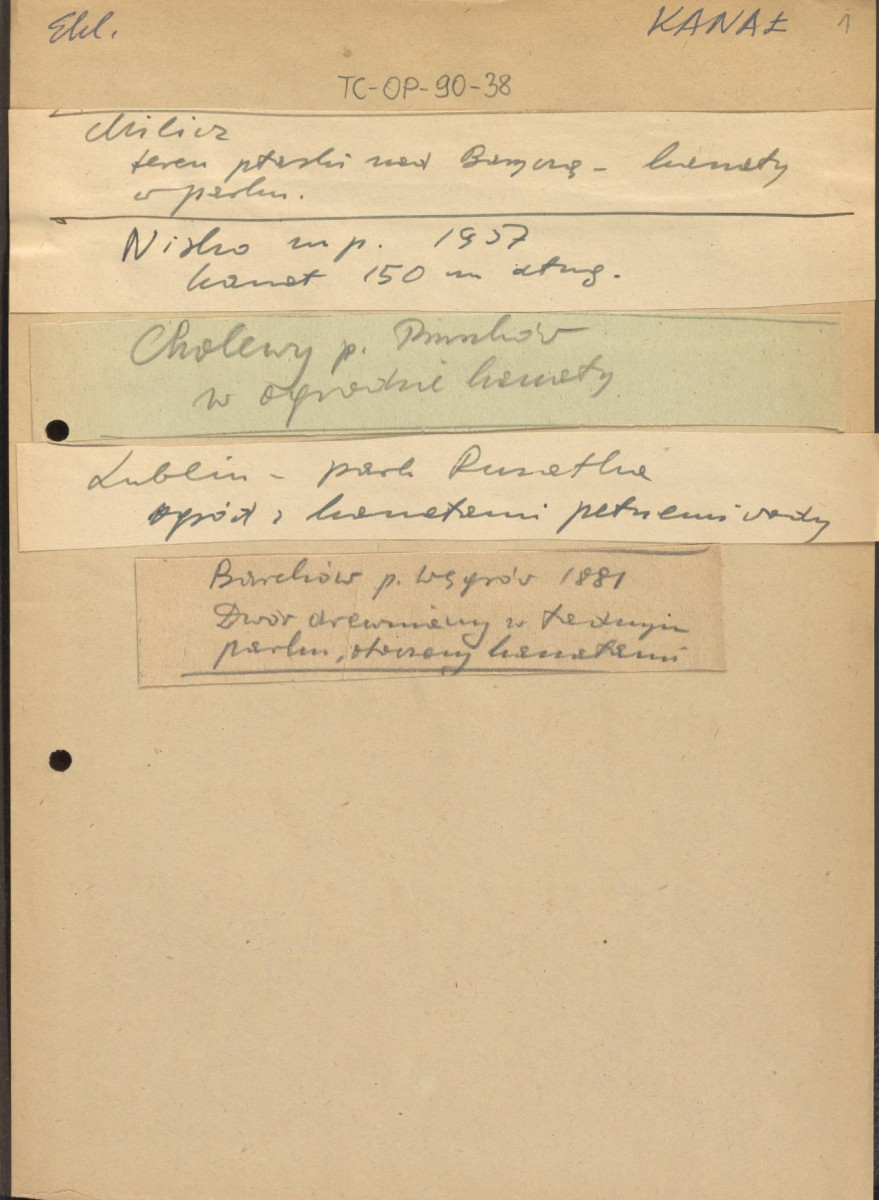 Ekl. KANAŁ 1
TC-OP-90-38
Milicz
teren płaski nad Baryczą – kanały
w parku.
Nisko m p. 1937
kanał 150 m dług.
Cholewy p.
w ogrodzie kanały
Lublin – park Rusałka
ogród z kanałami pełnemi wody
Barchów p. Węgrów 1881
Dwór drewniany w ładnym
parku, otoczony kanałami